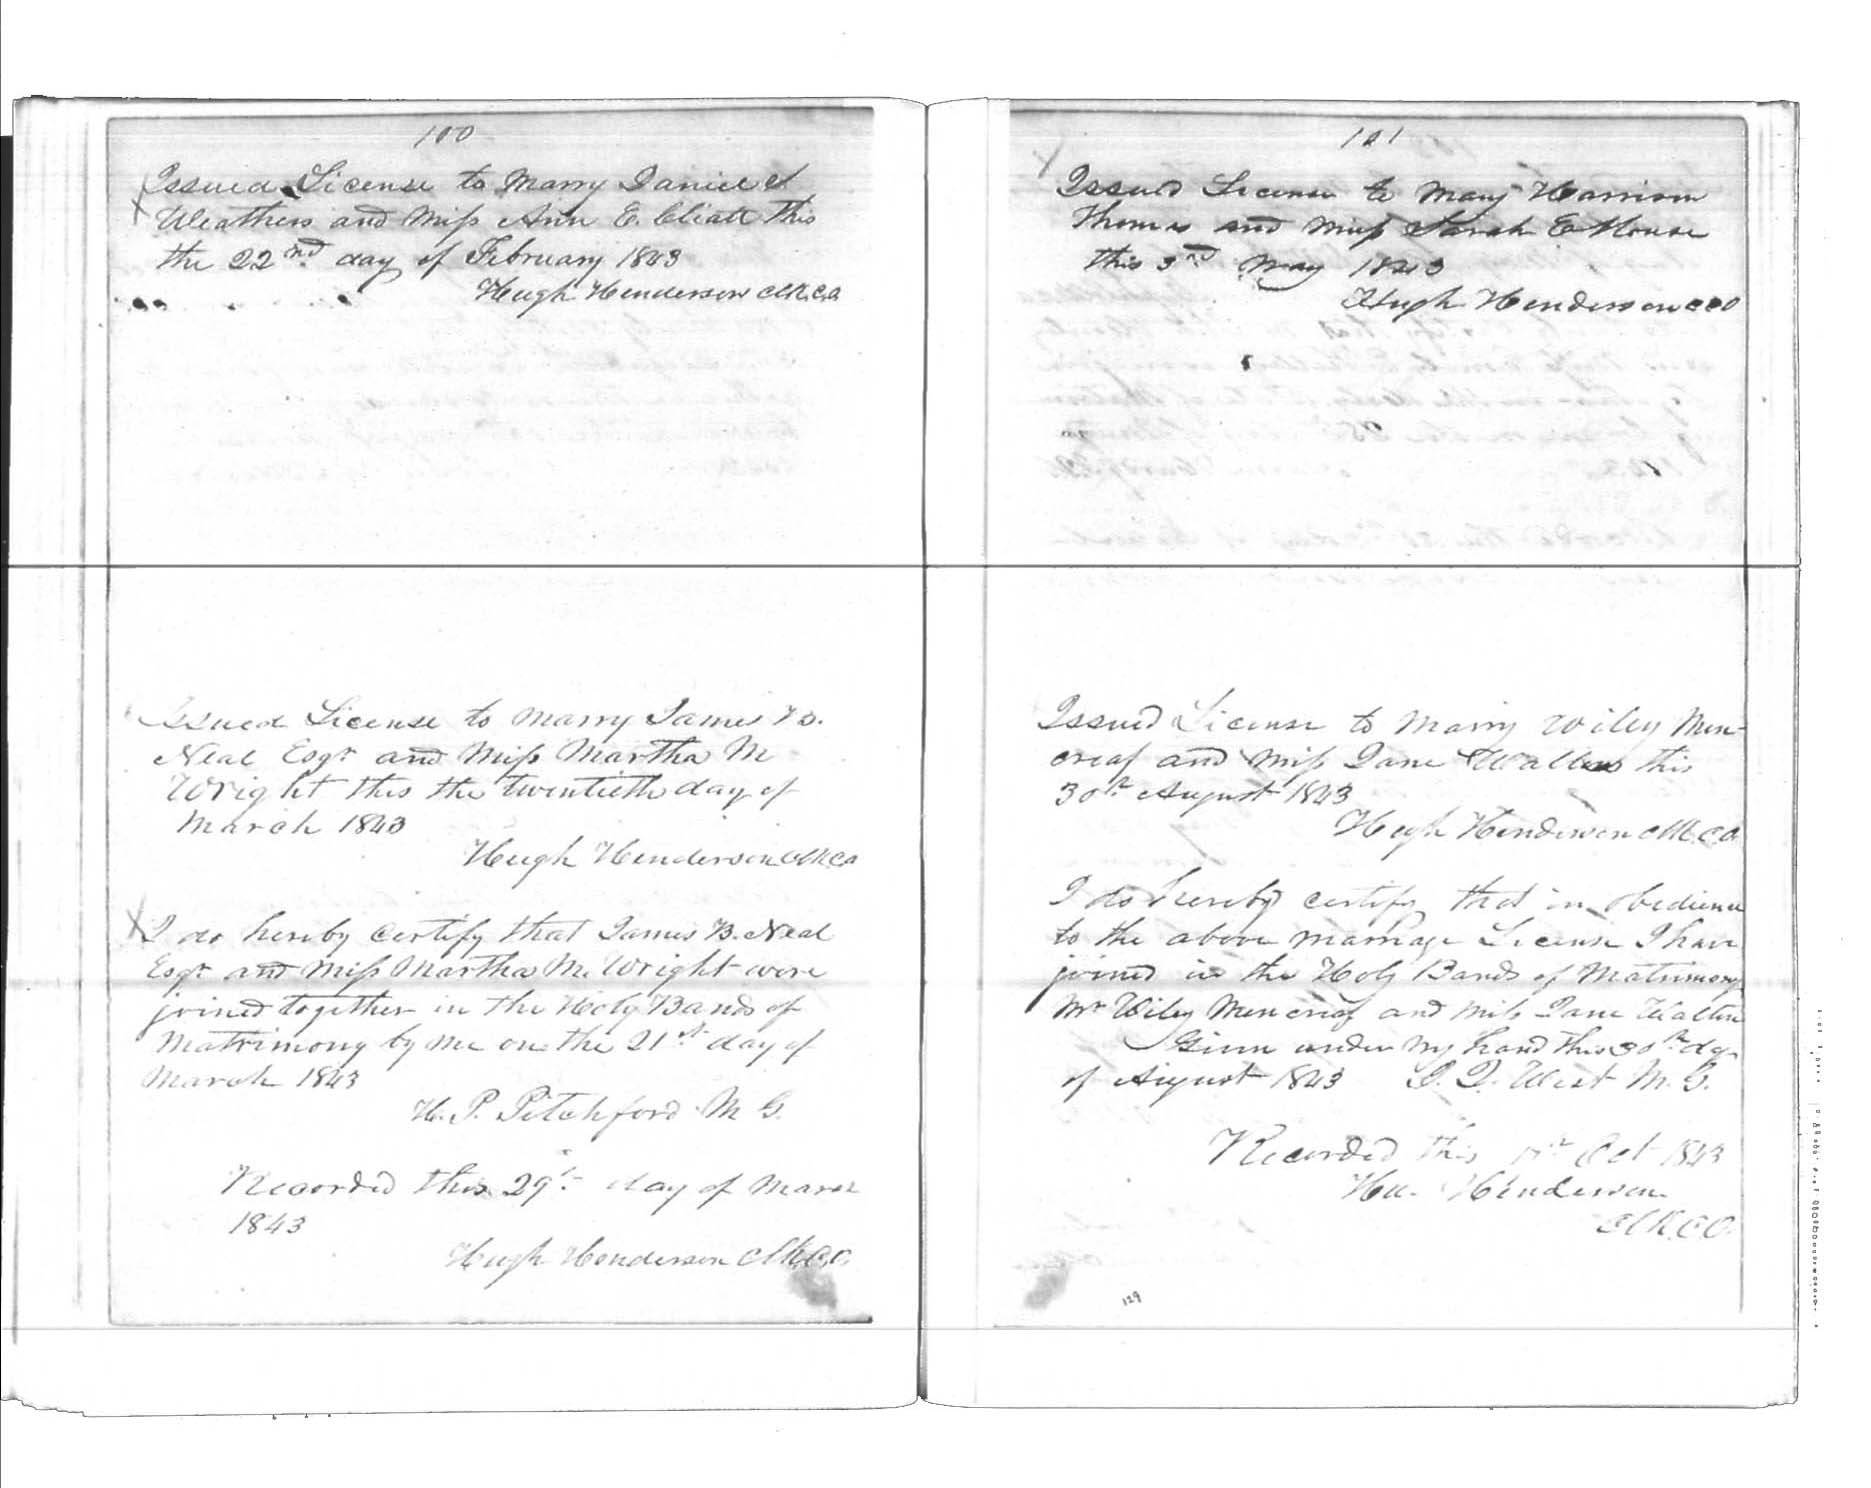 100
Issued License to Marry Daniel
Weathers and Miss Ann E. Cliatt this
the 22nd day of February 1843
Hugh Henderson Clk C.O.
Issued License to Marry James B.
Neal Esqr and Miss Martha M
Wright this the twentieth day of
March 1843
Hugh Henderson Clk C.O
I do hereby certify that James B. Neal
Esqr and Miss Martha M. Wright were
joined together in the Holy Bands of
Matrimony by me on the 21st day of
March 1843
H. P. Pitchford M G.
Recorded this 29th day of March
1843
Hugh Henderson Clk C.O.
101
Issued License to Mary Harrison
Thomas and Miss Sarah E House
this 3rd May 1843
Hugh Henderson CCO
Issued License to Marry Wiley Mon-
crief and Miss Jane this
30th August 1843
Hugh Henderson Clk C.O
I do hereby certify that in obedience
to the above marriage License I have
joined in the Holy Bands of Matrimony
Mr Wiley Moncrief and Miss Jane
Given under my hand this 30th day
of August 1843 West M. G.
Recorded this Oct 1843
Hu. Henderson
Clk C.O.
129